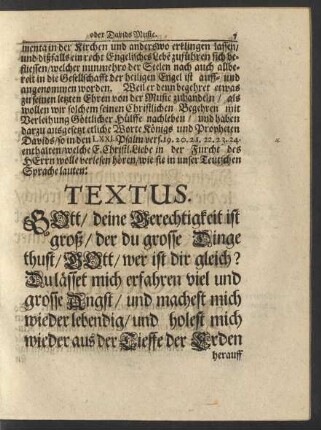 oder Davids Music. 5
menta in der Kirchen und anderswo erklingen lassen/
und dißfalls ein recht Engelisches Lebe zuführen sich be-
fliessen/welcher nunmehro der Seelen nach auch allbe-
reit in die Gesellschafft der heiligen Engel ist auff- und
angenommen worden. Weil er denn begehret etwas
zu seinen letzten Ehren von der Music zuhandeln/ als
wollen wir solchem seinen Christlichen Begehren mit
Verleihung Göttlicher Hülffe nachleben/ und haben
darzu ausgesetzt etliche Worte Königs und Propheten
Davids/so in den LXXI. Psalm vers. 19. 20. 21. 22. 23. 24.
enthalten/welche E. Christl. Liebe in der Furcht des
HErrn wolle verlesen hören/wie sie in unser Teutschen
Sprache lauten:
TEXTUS.
GOtt/ deine Gerechtigkeit ist
groß/ der du grosse Dinge
thust/ GOtt/ wer ist dir gleich?
Du lässet mich erfahren viel und
grosse Angst/ und machest mich
wieder lebendig/ und holest mich
wieder aus der Tieffe der Erden
herauff